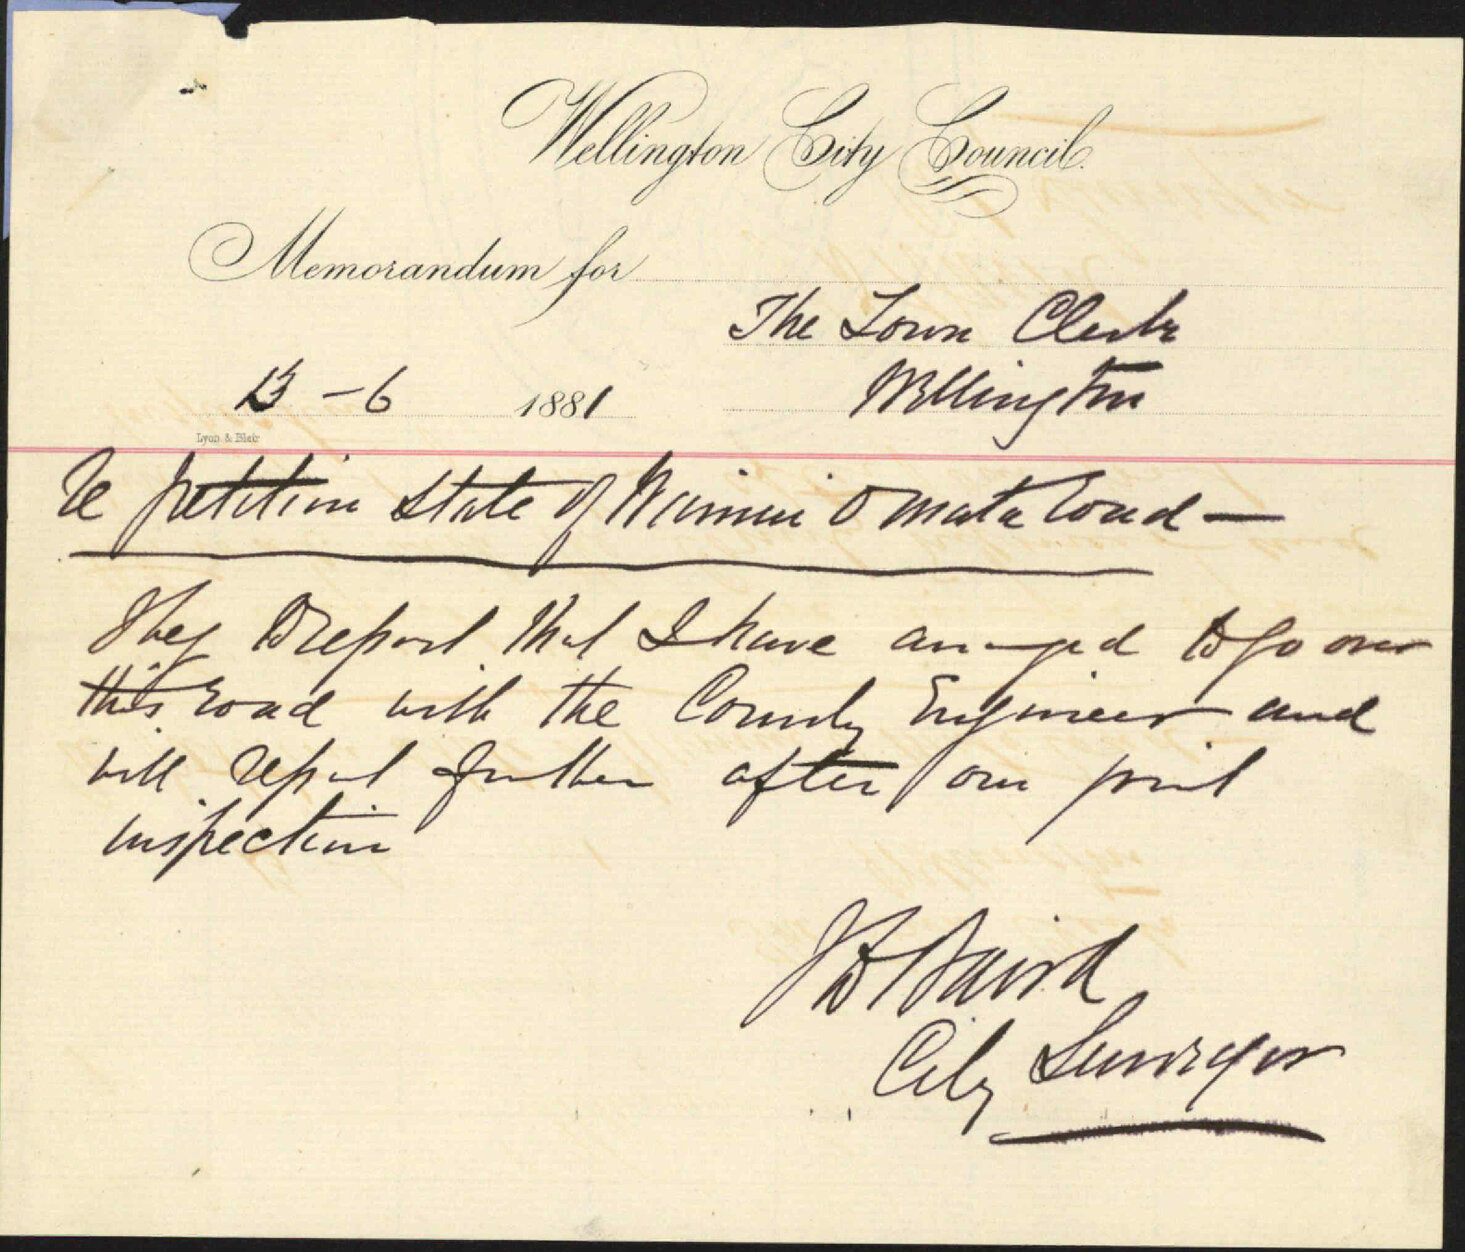 Wellington City Council.
Memorandum for
The Town Clerk
Wellington
13 - 6 1881
Lyon & Blair
Re petition State of Wainui O mata Road —
I beg to report that I have arranged to go over
this road with the County Engineer and
will report further after our joint
inspection
Baird
City Surveyor